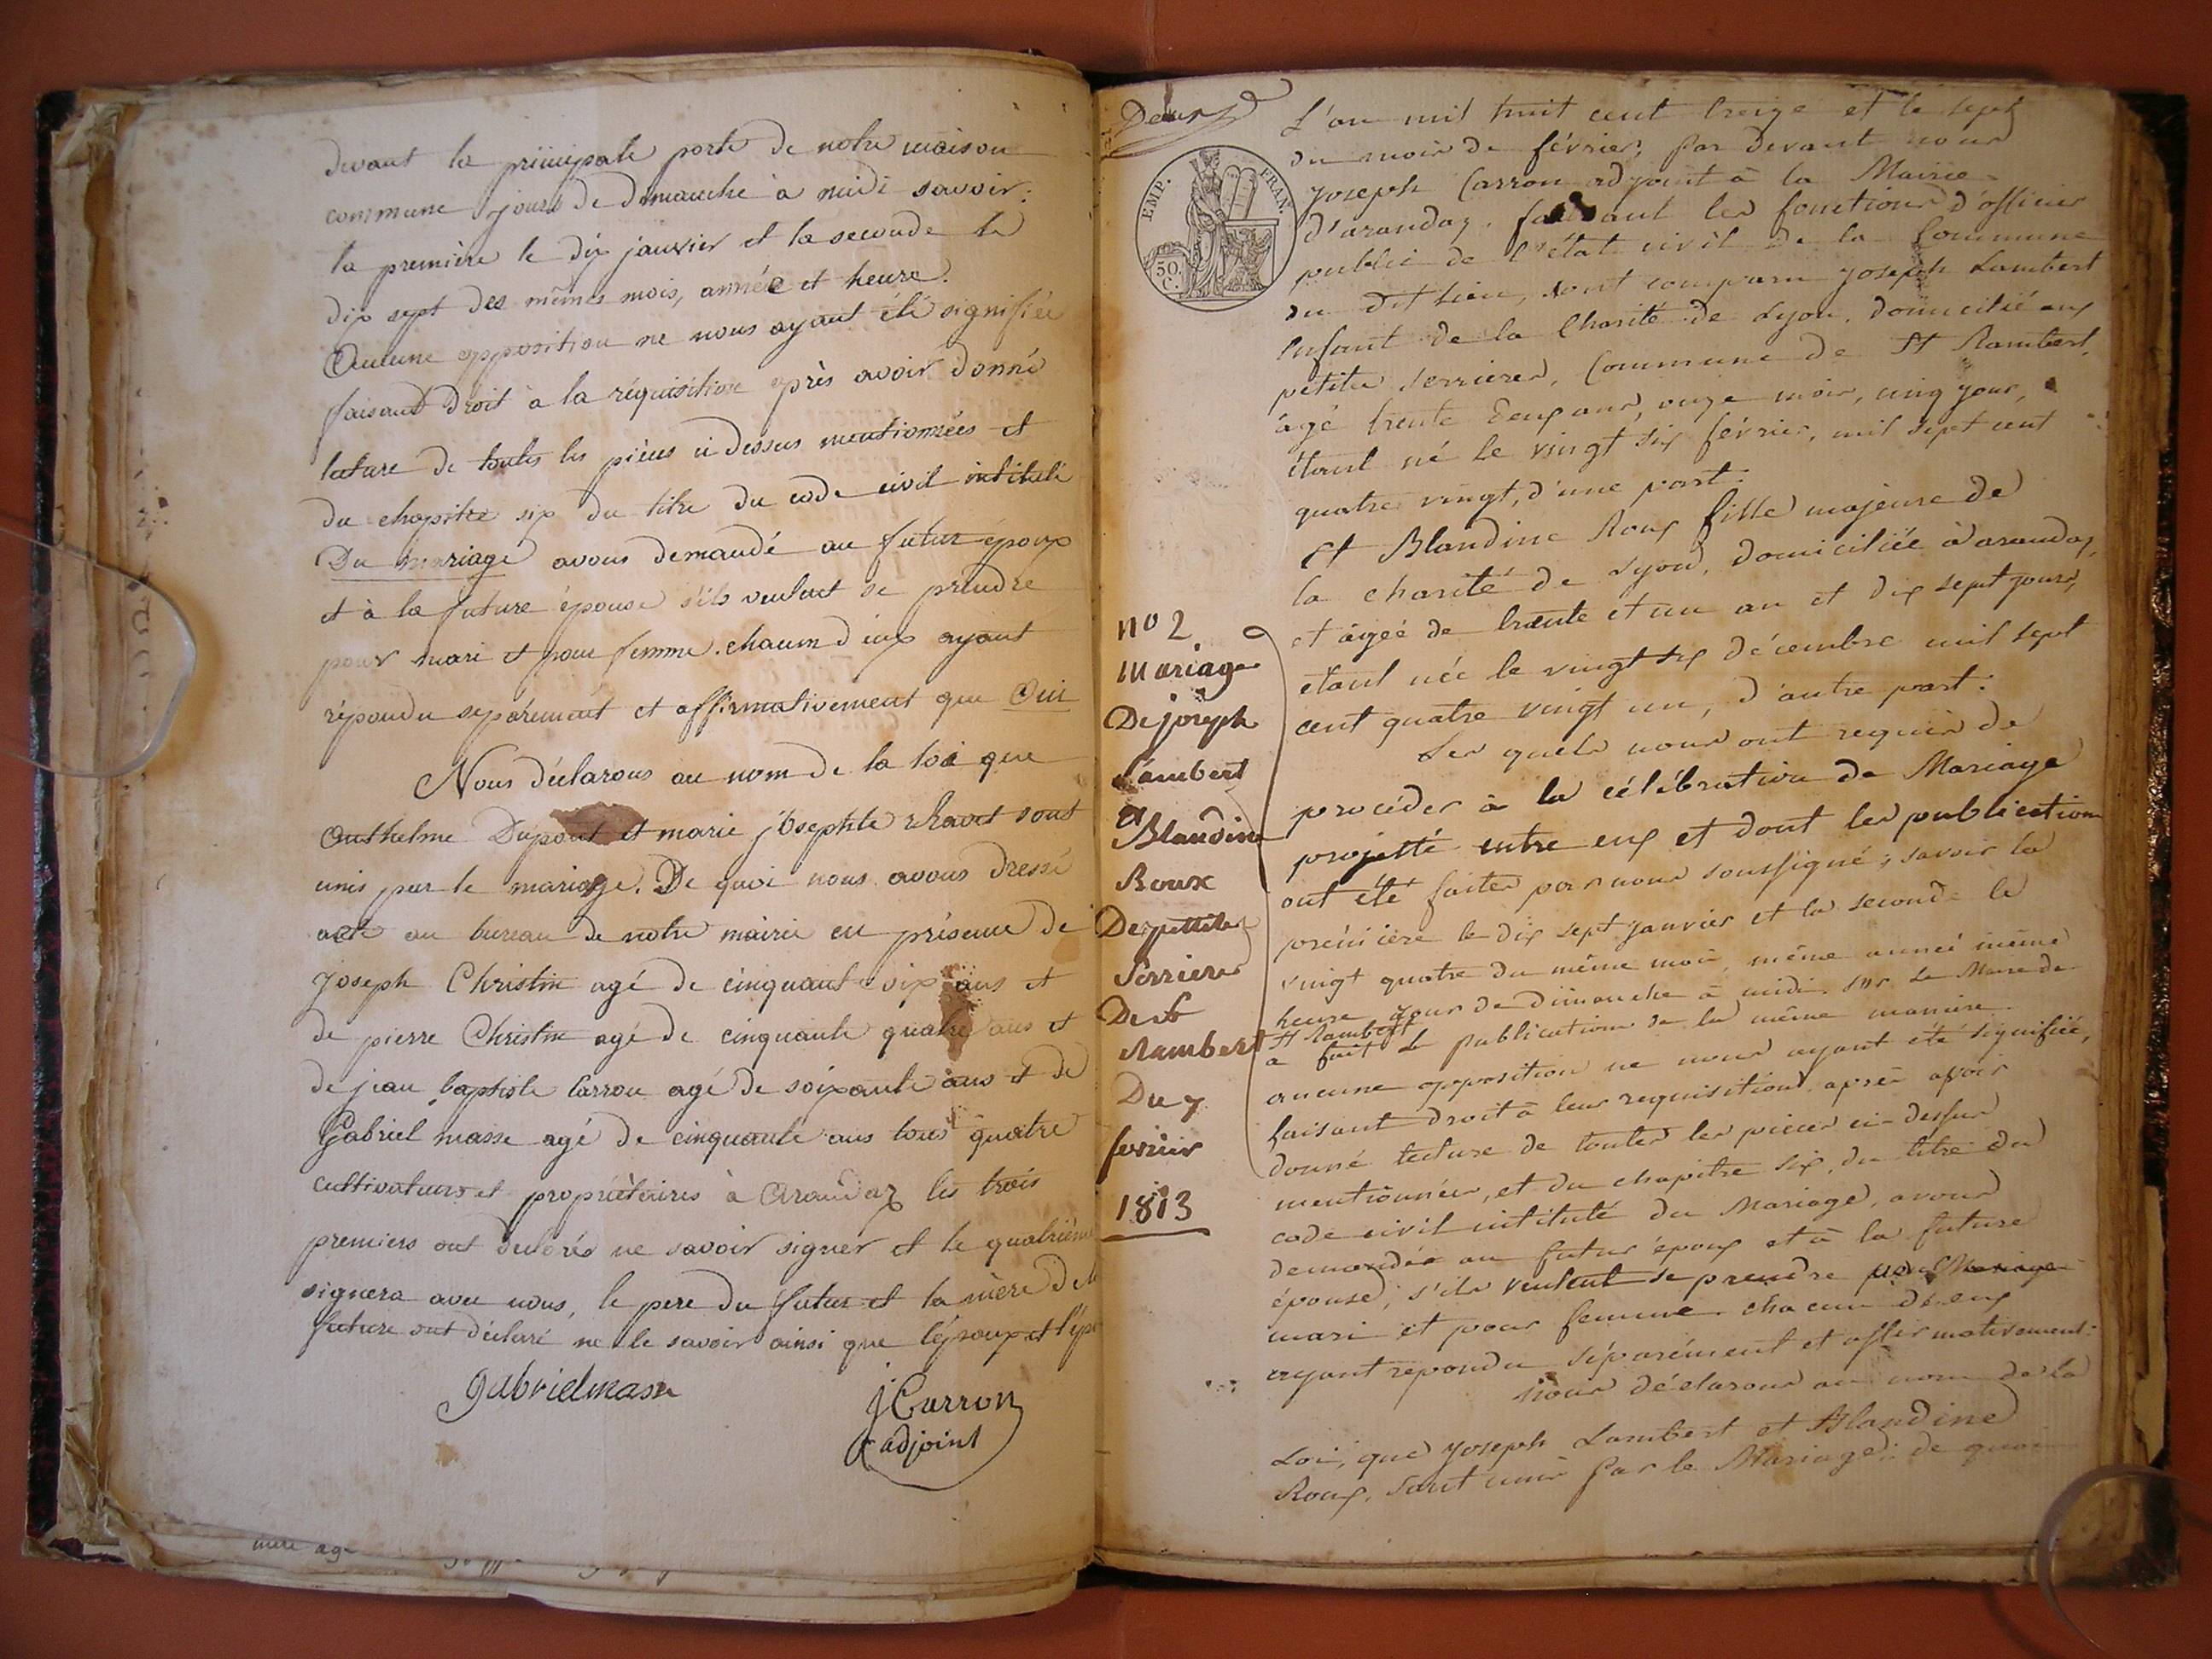 devant la principale porte de notre maison
commune jours de dimanche à midi savoir:
la première le dix janvier et la seconde le
dix sept des mêmes mois, année et heure.
Aucune opposition ne nous ayant été signifiée
faisant droit à la réquisition après avoir donné
lecture de toutes les pièces ci dessus mentionnées et
du chapitre six du titre du code civil intitulé
Du mariage avons demandé au futur époux
et à la future épouse s'ils veulent se prendre
pour mari et pour femme. chacun d'eux ayant
répondu séparément et affirmativement que Oui
Nous déclarons au nom de la loi que
Anthelme Dupont et marie josephte Ravet sont
unis par le mariage. De quoi nous avons dressé
acte au bureau de notre mairie en présence de
joseph Christin agé de cinquante six ans et
de pierre Christin agé de cinquante quatre ans et
de jean baptiste Carron agé de soixante ans et de
Gabriel masse agé de cinquante ans tous quatre
cultivateurs et propriétaires à Arandaz les trois
premiers ont déclaré ne savoir signer et le quatrième
signera avec nous, le pere du futur et la mère de la
future ont déclaré ne le savoir ainsi que l'époux et l'ép
gabrielmasse
jCarron
adjoint
mere ag
Deux
EMP. FRAN.
50. C.
L'an mil huit cent treize et le sept
du mois de février, par devant nous
joseph Carron adjoint à la Mairie
d'arandaz, faisant les fonctions d'officier
public de l'état civil de la Commune
du dit lieu, sont comparu joseph Lambert
Enfant de la Charité de Lyon, domicilié aux
petites serrieres, Commune de St Rambert,
âgé trente deux ans, onze mois, cinq jour,
étant né le vingt six février, mil sept cent
quatre vingt, d'une part.
Et Blandine Roux fille majeure de
la charité de Lyon, domiciliée à arandaz,
et âgée de trente et un an et dix sept jours,
étant née le vingt six décembre mil sept
cent quatre vingt un, d'autre part.
Les quels nous ont requis de
procéder à la célébration de Mariage
projetté entre eux et dont les publications
ont été faites par nous soussigné; savoir la
prémiere le dix sept janvier et la seconde le
vingt quatre du même mois, même année même
heure jour de dimanche à midi. Mr le Maire de
St Rambert
a fait le publication de la même maniere
aucune opposition ne nous ayant été signifiée,
faisant droit à leur requisition après avoir
donné lecture de toutes les pièces ci-dessus
mentionnées, et du chapitre six, du titre du
code civil intitulé du Mariage, avons
demandés au futur époux et à la future
épouse, s'ils veulent se prendre
mari et pour femme. chacun d'eux
ayant répondu séparément et affirmativement:
Nous déclarons au nom de la
Loi, que joseph Lambert et Blandine
Roux, sont unis par le Mariage: de quoi
no 2
Mariage
De joseph
Lambert
et
Blandine
Roux
De petites
Serrieres
De St
Rambert
Du 7
fevrier
1813